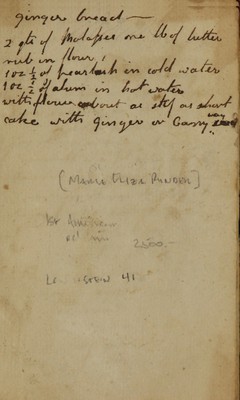 ginger bread —
2 qts of Molasses one lb of butter
rub in flour,
1 oz ½ of pearlash in cold water
1 oz ½ of alum in hot water
with flour about as stif as short
cake with ginger or Carry way
(Maria Eliza Rundell)
1st American
ed
2500.-
41